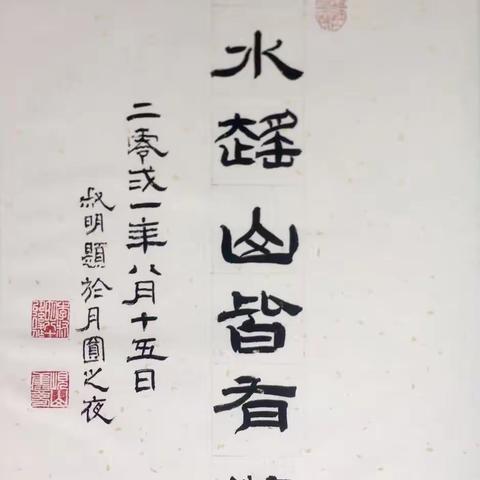 水山皆有
二零弍一年八月十五日
叔明題於月圓之夜